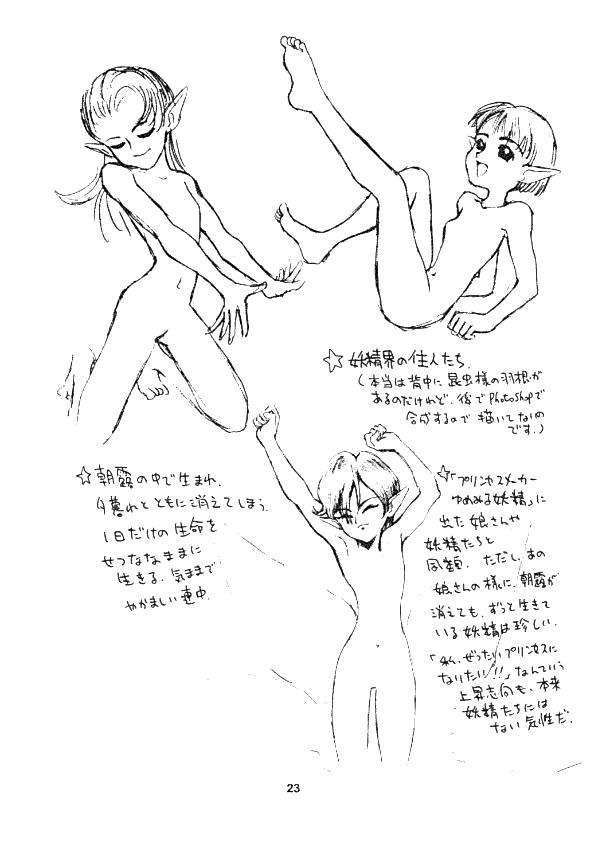 ☆妖精界の住人たち.
(本当は背中に昆虫様の羽根が
あるのだけれど、後でPhotoshopで
合成するので描いてないの
です.)
☆朝露の中で生まれ、
夕暮れとともに消えてしまう.
1日だけの生命を
せつななままに
生きる、気ままで
やかましい連中.
☆「プリンセスメーカー
ゆめみる妖精」に
出た娘さんや
妖精たちと
同類. ただし、あの
娘さんの様に、朝露が
消えても、ずっと生きて
いる妖精は珍しい.
「私、ぜったいプリンセスに
なりたい!!」なんていう
上昇志向も、本来
妖精たちには
ない気性だ.
23